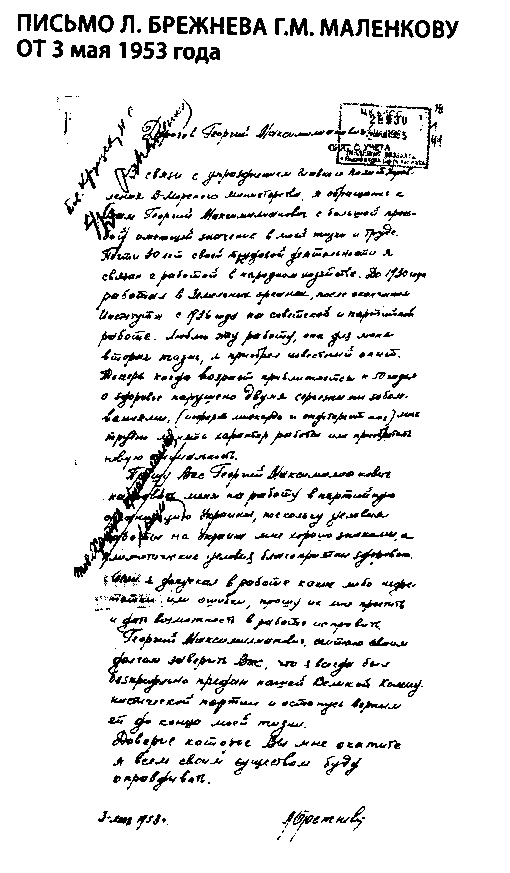 ПИСЬМО Л. БРЕЖНЕВА Г.М. МАЛЕНКОВУ
ОТ 3 мая 1953 года
Дорогой Георгий Максимилианович,
связи с упразднением Главного политуправ-
ления В-Морского Министерства, я обращаюсь к
Вам Георгий Максимилианович с большой прось-
бой имеющей значение в моей жизни и труде.
Почти 30 лет своей трудовой деятельности я
связан с работой в народном хозяйстве. До 1930 года
работал в Земельных органах, после окончания
Института с 1936 года на советской и партийной
работе. Люблю эту работу, она для меня
вторая жизнь, я приобрел известный опыт.
Теперь когда возраст приближается к 50 годам
а здоровье нарушено двумя серьезными забол-
ваниями, (инфаркт миокарда и эндотерит ног) мне
трудно менять характер работы или приобретать
новую специальность.
Прошу Вас Георгий Максимилианович
направить меня на работу в партийную
организацию Украины, поскольку условия
работы на Украине мне хорошо знакомы, а
климатические условия благоприятны здоровью.
Если я допускал в работе какие либо недос-
татки или ошибки, прошу их мне простить
и дать возможность в работе исправить.
Георгий Максимилианович, считаю своим
долгом заверить Вас, что я всегда был
безпредельно предан нашей Великой Комму-
нистической партии и останусь верным
ей до конца моей жизни.
Доверие которое Вы мне окажите
я всем своим существом буду
оправдывать.
3 мая 1953 г.
Л Брежнев